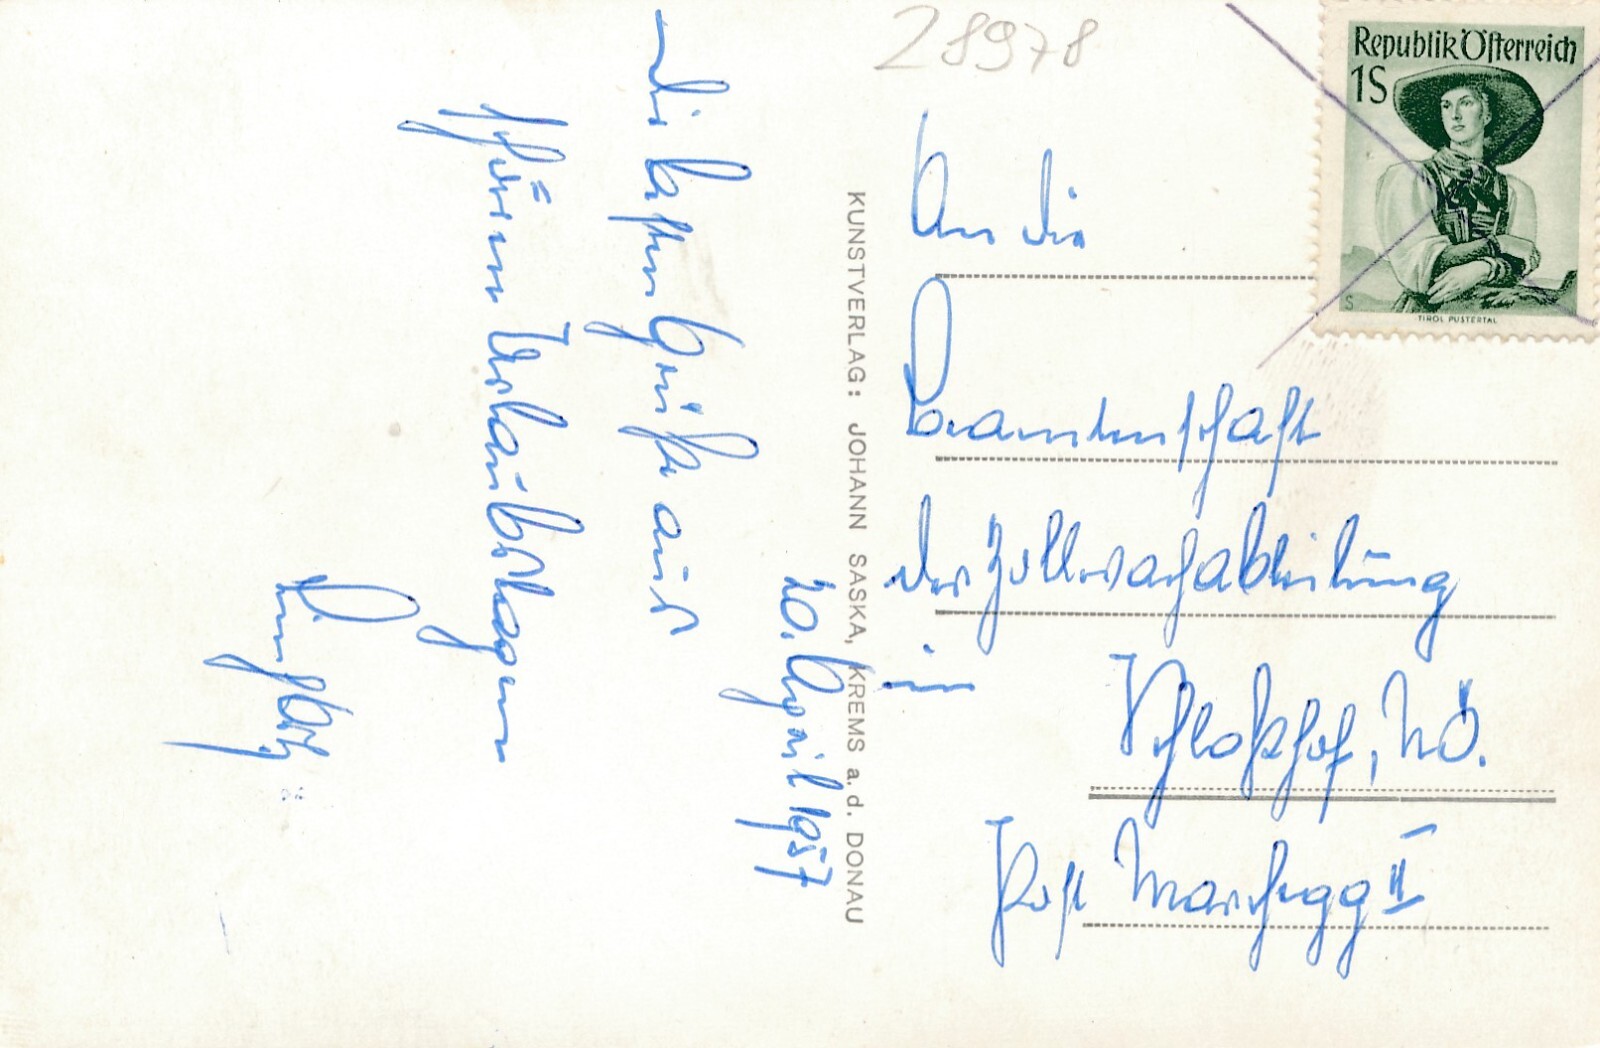 20. April 1957
Die besten Grüße aus
schönen Urlaubstagen
KUNSTVERLAG: JOHANN SASKA, KREMS a. d. DONAU
28978
Republik Österreich
1S
S
TIROL PUSTERTAL
An die
Beamtenschaft
der Zollwachabteilung
in
Schloßhof, NÖ.
Post Marchegg II